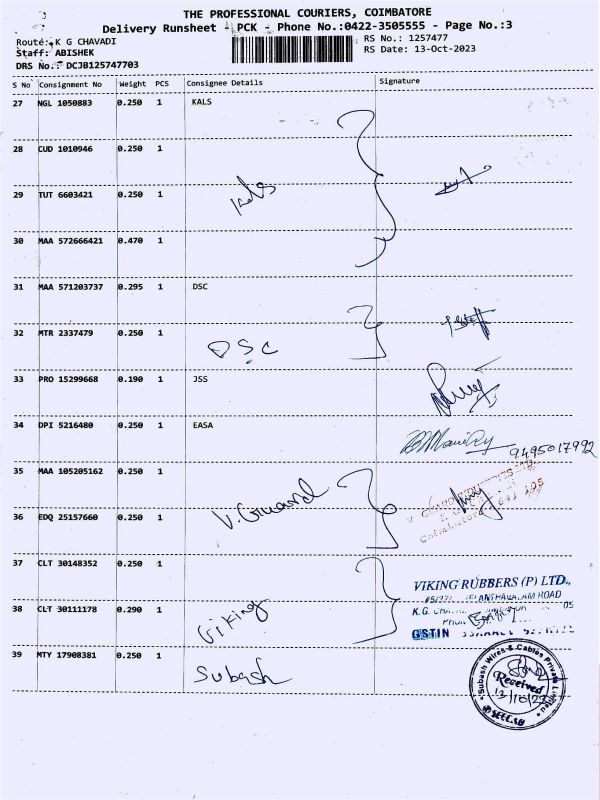 THE PROFESSIONAL COURIERS, COIMBATORE
Delivery Runsheet - PCK - Phone No.:0422-3505555 - Page No.:3
Route: K G CHAVADI
RS No.: 1257477
Staff: ABISHEK
RS Date: 13-Oct-2023
DRS No.: DCJB125747703
S No Consignment No Weight PCS Consignee Details Signature
27 NGL 1050883 0.250 1 KALS
28 CUD 1010946 0.250 1
29 TUT 6603421 0.250 1
Kals
30 MAA 572666421 0.470 1
31 MAA 571203737 0.295 1 DSC
32 MTR 2337479 0.250 1
DSC
33 PRO 15299668 0.190 1 JSS
34 DPI 5216480 0.250 1 EASA
9495017992
35 MAA 105205162 0.250 1
V. Guard
36 EDQ 25157660 0.250 1
Coimbatore 641 105
37 CLT 30148352 0.250 1
VIKING RUBBERS (P) LTD.,
ROAD
38 CLT 30111178 0.290 1
Viking
K.G.
05
GSTIN
39 MTY 17908381 0.250 1
Subash
Subash Wires & Cables Private Limited
Received